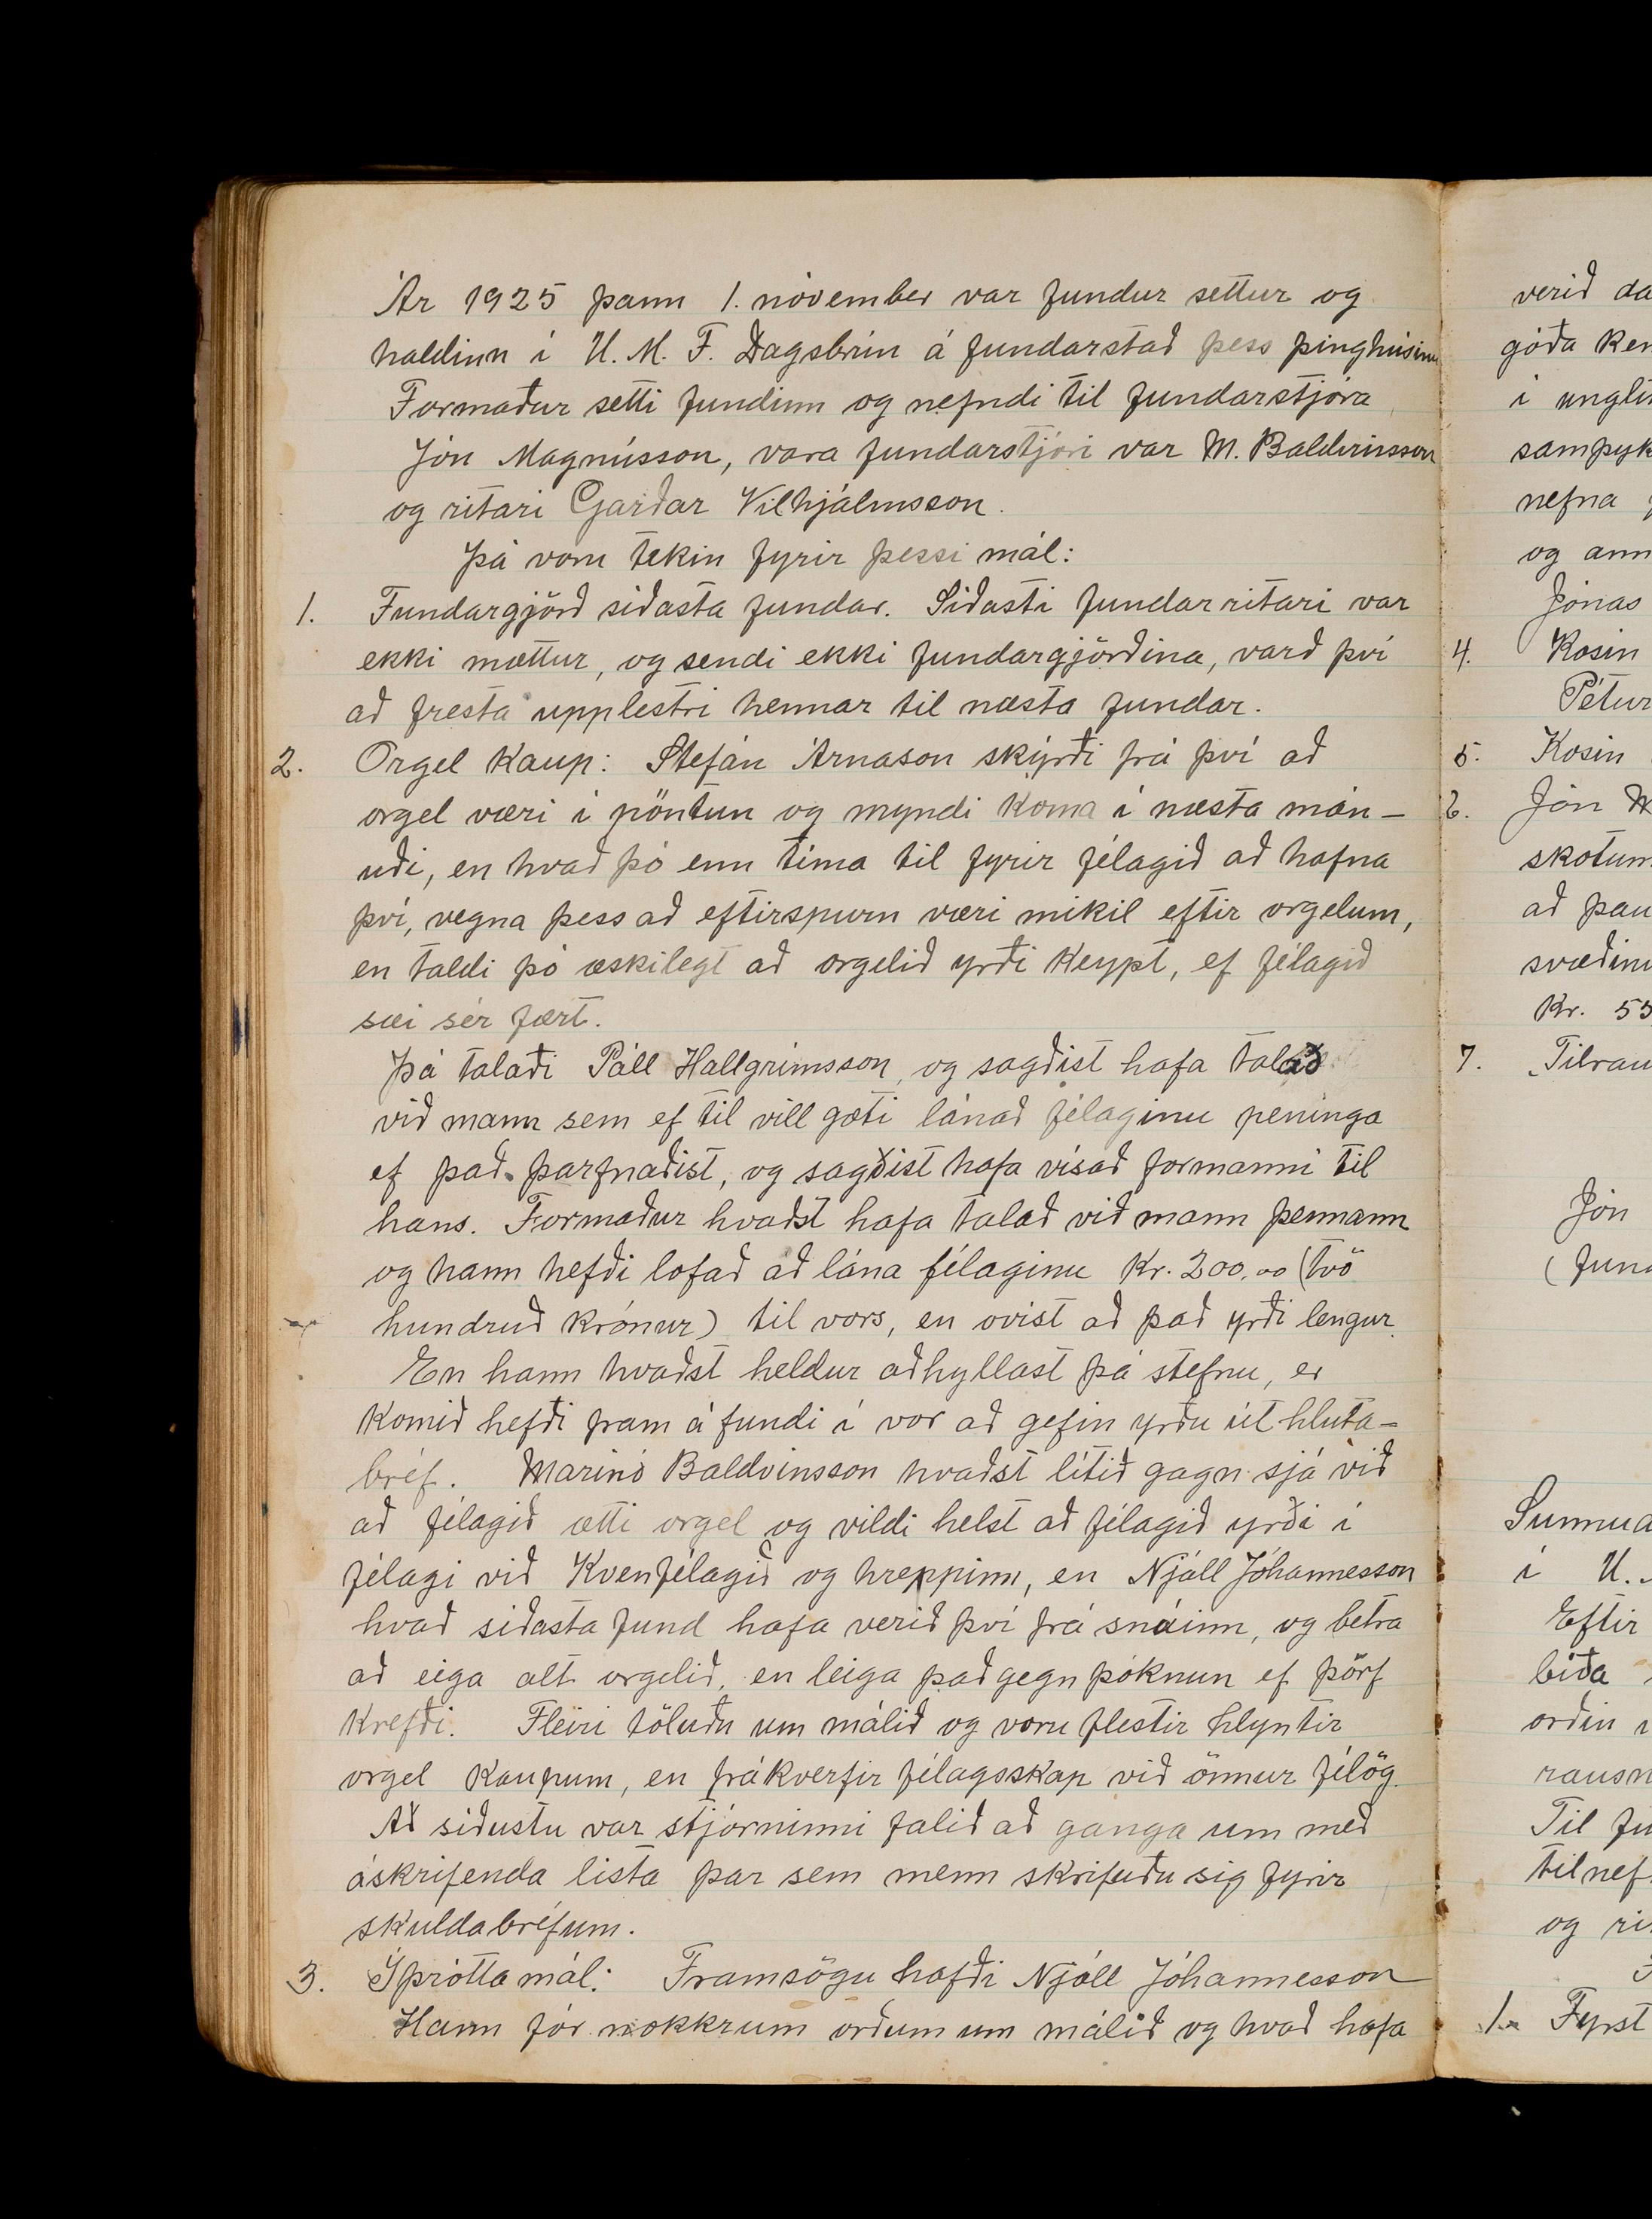 Ár 1925 þann 1. nóvember var fundur settur og
haldinn í U. M. F. Dagsbrún á fundarstað þess þinghúsinu
Formaður setti fundinn og nefndi til fundarstjóra
Jón Magnússon, vara fundarstjóri var M. Baldvinsson
og ritari Garðar Vilhjálmsson.
Þá voru tekin fyrir þessi mál:
1. Fundargjörð síðasta fundar. Síðasti fundarritari var
ekki mættur, og sendi ekki fundargjörðina, varð því
að fresta upplestri hennar til næsta fundar.
2. Orgel kaup: Stefán Árnason skýrði frá því að
orgel væri í pöntun og myndi koma í næsta mán-
uði, en hvað þó enn tíma til fyrir félagið að hafna
því, vegna þess að eftirspurn væri mikil eftir orgelum,
en taldi þó æskilegt að orgelið yrði keypt, ef félagið
sæi sér fært.
Þá talaði Páll Hallgrímsson, og sagðist hafa talað
við mann sem ef til vill gæti lánað félaginu peninga
ef það þarfnaðist, og sagðist hafa vísað formanni til
hans. Formaður hvaðst hafa talað við mann þennann
og hann hefði lofað að lána félaginu Kr. 200,00 (tvö
hundruð krónur) til vors, en óvíst að það yrði lengur.
En hann hvaðst heldur aðhyllast þá stefnu, er
komið hefði fram á fundi í vor að gefin yrðu út hluta-
bréf. Marinó Baldvinsson hvaðst lítið gagn sjá við
að félagið ætti orgel og vildi helst að félagið yrði í
félagi við Kvenfélagið og hreppinn, en Njáll Jóhannesson
hvað síðasta fund hafa verið því frá snúinn, og betra
að eiga alt orgelið, en leiga það gegn þóknun ef þörf
krefði. Fleiri töluðu um málið og voru flestir hlyntir
orgel kaupum, en fráhverfir félagsskap við önnur félög.
Að síðustu var stjórninni falið að ganga um með
áskrifenda lista þar sem menn skrifuðu sig fyrir
skuldabréfum.
3. Íþrótta mál: Framsögu hafði Njáll Jóhannesson
Hann fór nokkrum orðum um málið og hvað hafa
verið da
góða ken
í ungli
samþyk
nefna
og ann
Jónas
4. Kosin
Pétur
5. Kosin
6. Jón M
skotum
að þau
svæðinu
Kr. 55
7. Tilrau
Jón
(fund
Sunnud
í U.
Eftir
bíða
orðin
rausn
Til fu
tilnef
og ri
1. Fyrst